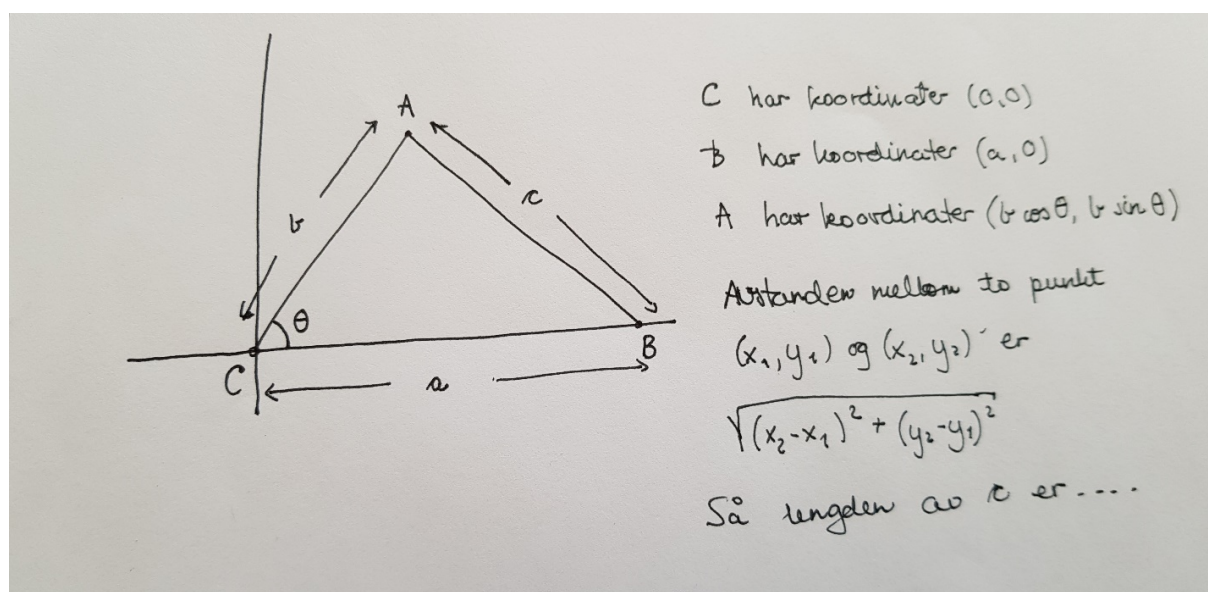 A
b
c
θ
C
B
a
C har koordinater (0,0)
B har koordinater (a,0)
A har koordinater (b cosθ, b sinθ)
Avstanden mellom to punkt
(x₁,y₁) og (x₂,y₂) er
√(x₂-x₁)² + (y₂-y₁)²
Så lengden av c er....